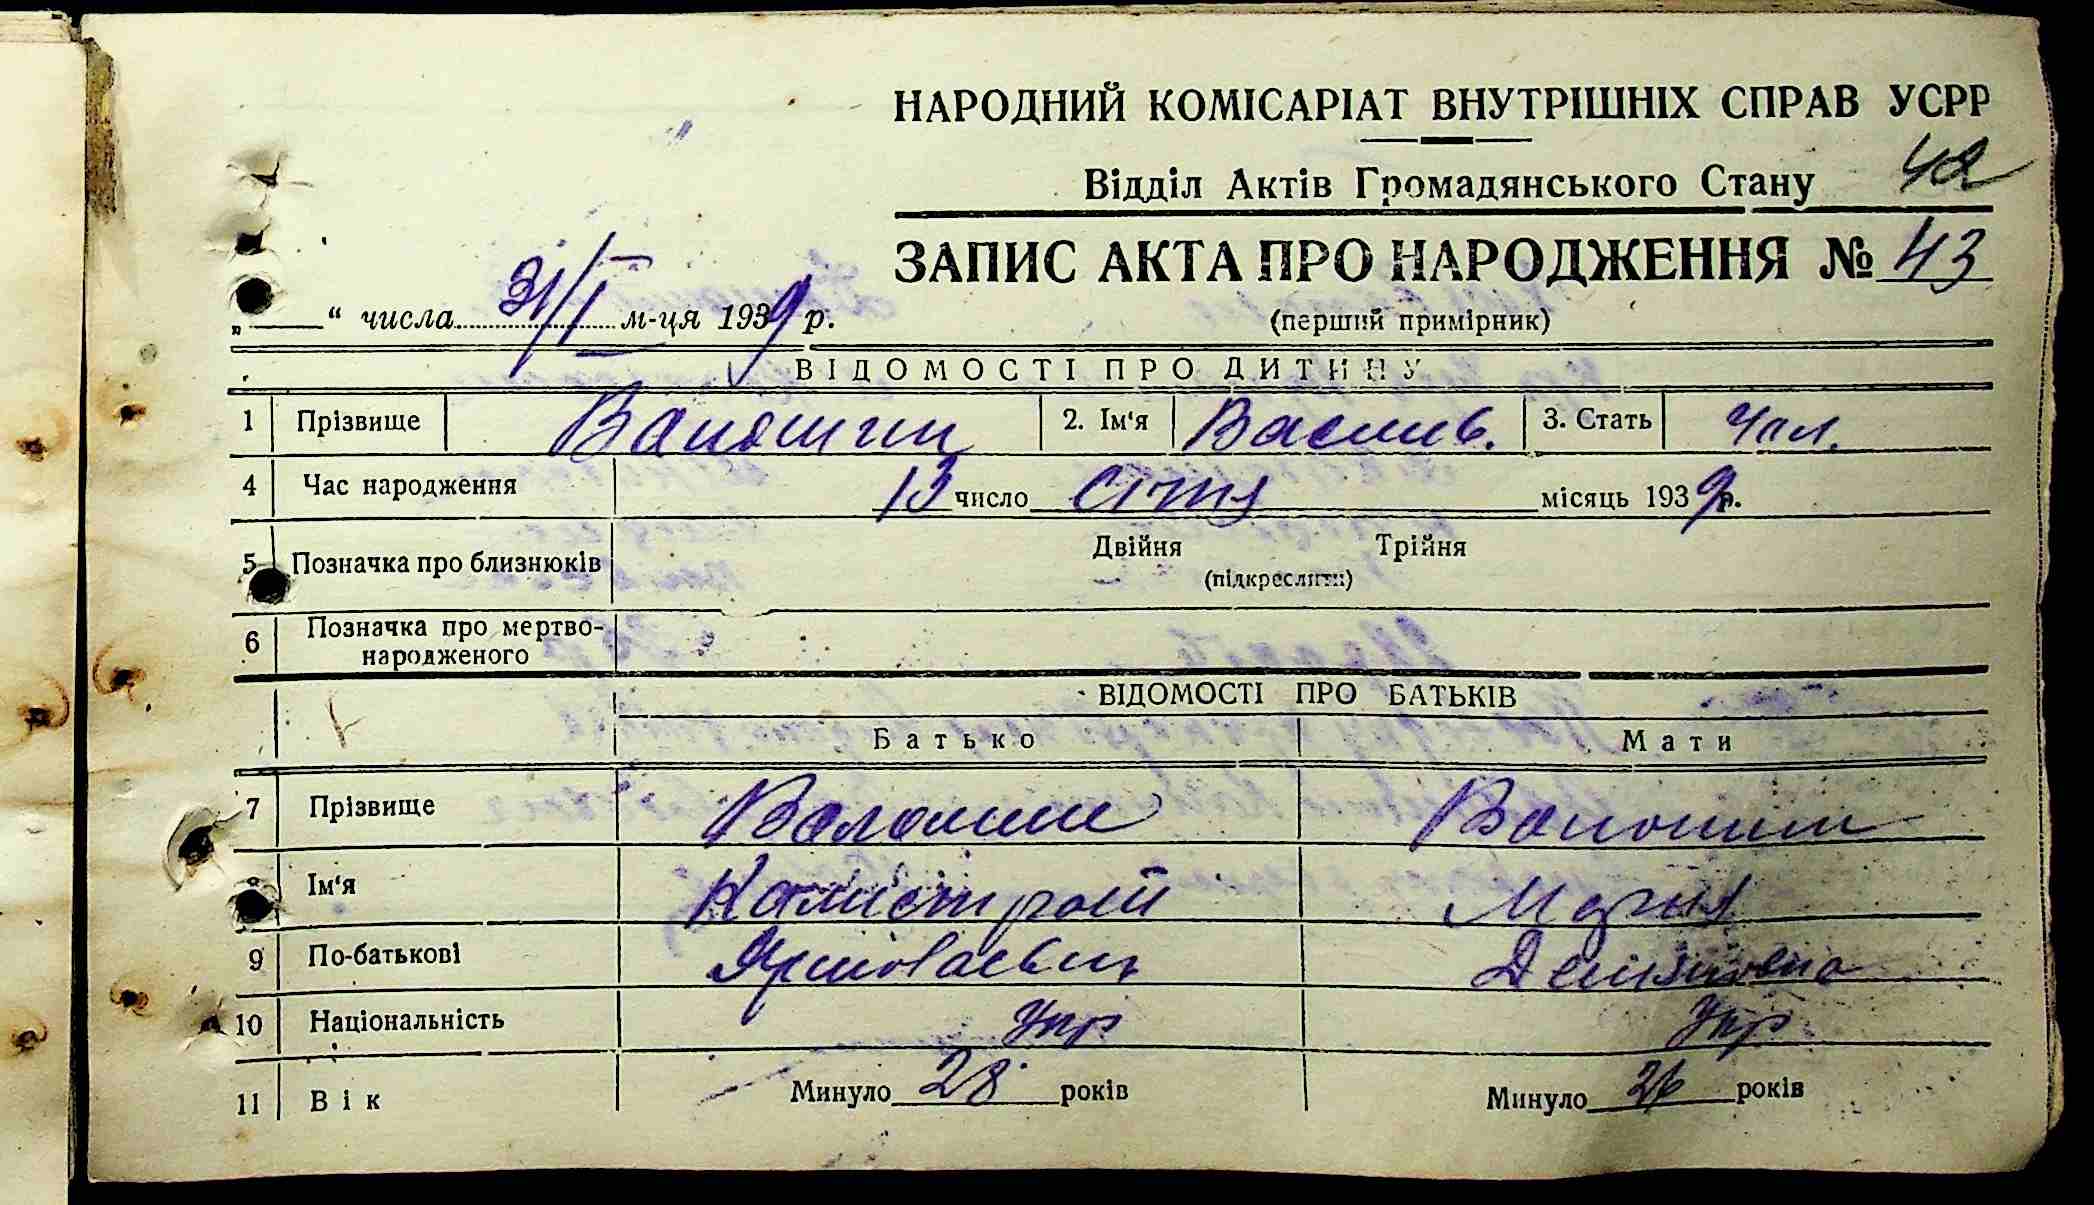 НАРОДНИЙ КОМІСАРІАТ ВНУТРІШНІХ СПРАВ УСРР
Відділ Актів Громадянського Стану 42
ЗАПИС АКТА ПРО НАРОДЖЕННЯ № 43
„ “ числа 31/I м-ця 1939 р. (перший примірник)
ВІДОМОСТІ ПРО ДИТИНУ
1 Прізвище 2. Ім‘я Василь. 3. Стать Чол.
4 Час народження 13 число Січня місяць 1939 р.
5 Позначка про близнюків Двійня Трійня
(підкреслити)
6 Позначка про мертво-
народженого
ВІДОМОСТІ ПРО БАТЬКІВ
Батько Мати
7 Прізвище Волошин Волошин
8 Ім‘я Калістрат Мария
9 По-батькові
10 Національність Укр Укр
11 Вік Минуло 28 років Минуло 26 років